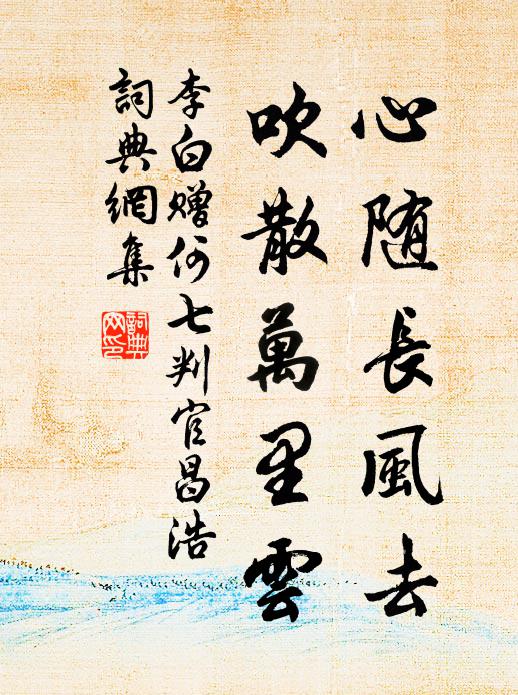 心随長風去
吹散萬里雲
李白赠何七判官昌浩
詞典網集
詞典網印